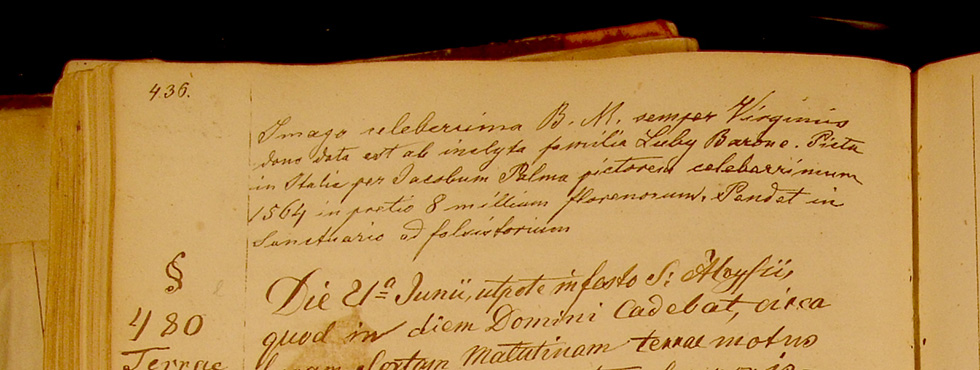 436.
Imago celeberrima B. M. semper Virginis
dono data est ab inclyta familia Luby Barone. Picta
in Italia per Jacobum Palma pictorem celeberrimum
1564 in pretio 8 millium florenorum. Pendet in
Sanctuario ad falsistorium
§
480
Terrae
Die 21ª Junii, utpote in festo S: Aloysii,
quod in diem Domini Cadebat, circa
horam Sextam Matutinam terrae motus